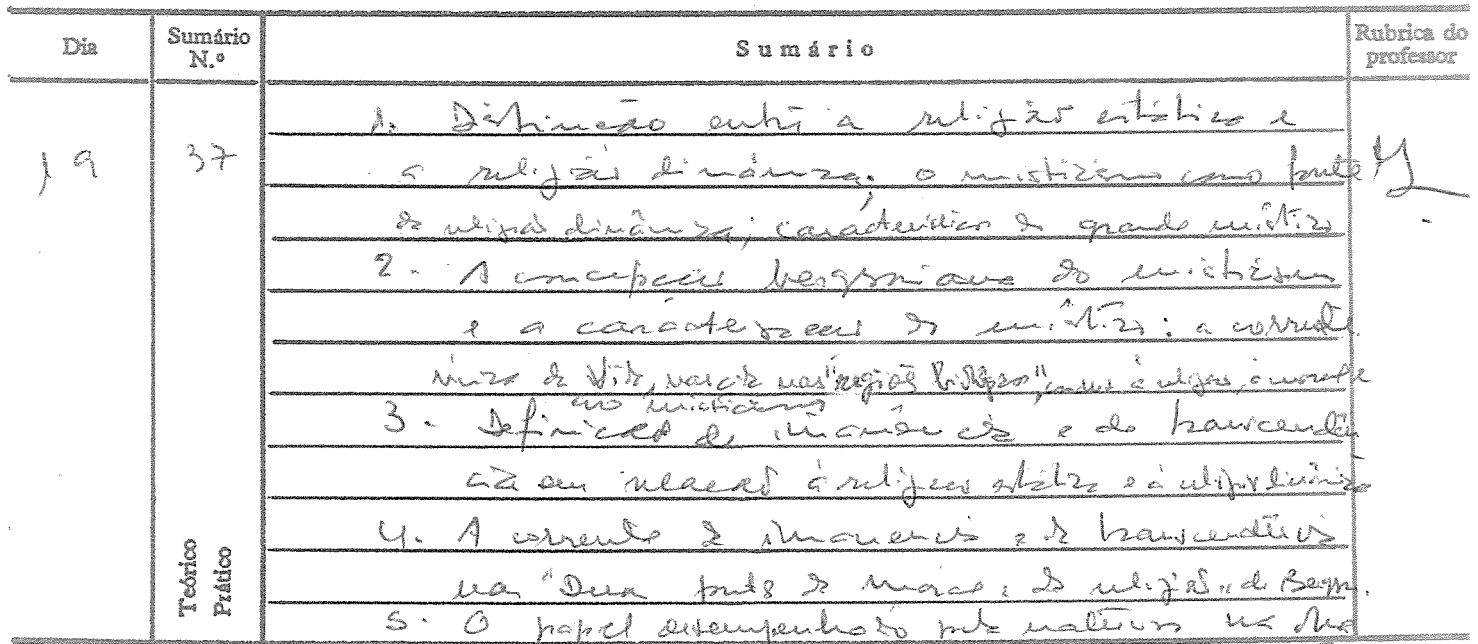 Dia
Sumário N.º
Sumário
Rubrica do professor
19
37
1. Distinção entre a religião estática e
a religião dinâmica; o misticismo como fonte
da religião dinâmica; características do grande místico
2. A concepção bergsoniana do misticismo
e a caracterização do místico: a corrente
única da Vida, nascida nas "regiões
ao misticismo
3. Definição de imanência e de transcendên
cia em relação à religião estática e à religião dinâmica
4. A corrente de imanência e de transcendência
nas "Duas fontes da moral e da religião" de Bergson.
5. O papel desempenhado pela matéria na
Teórico
Prático